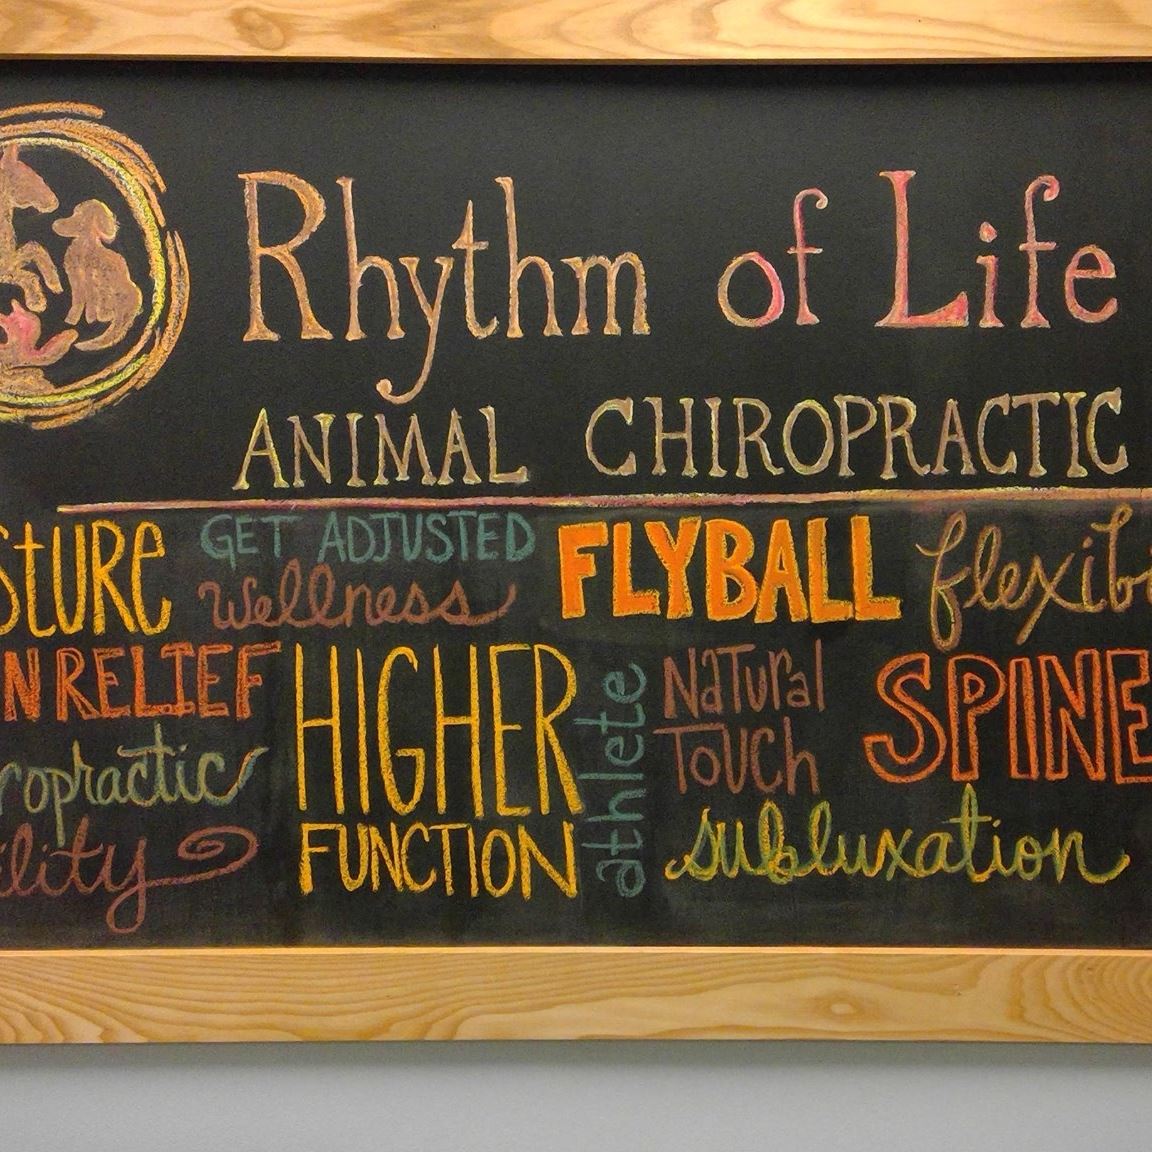 Rhythm of Life
ANIMAL CHIROPRACTIC
STURE
GET ADJUSTED
wellness
FLYBALL
flexibi
N RELIEF
HIGHER
FUNCTION
athlete
Natural
Touch
SPINE
ropractic
ility
subluxation